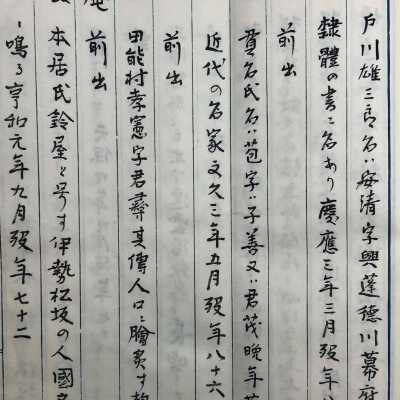 戸川雄三郎名ハ安清字興蓬徳川幕府
隷體の書ニ名あり慶應三年三月歿年八
前出
貫名氏名ハ苞字ハ子善又ハ君茂晩年
近代の名家文久三年五月歿年八十六
前出
田能村孝憲字君彜其傳人口ニ膾炙す
前出
本居氏鈴屋と号す伊勢松坂の人國
鳴る享和元年九月歿年七十二